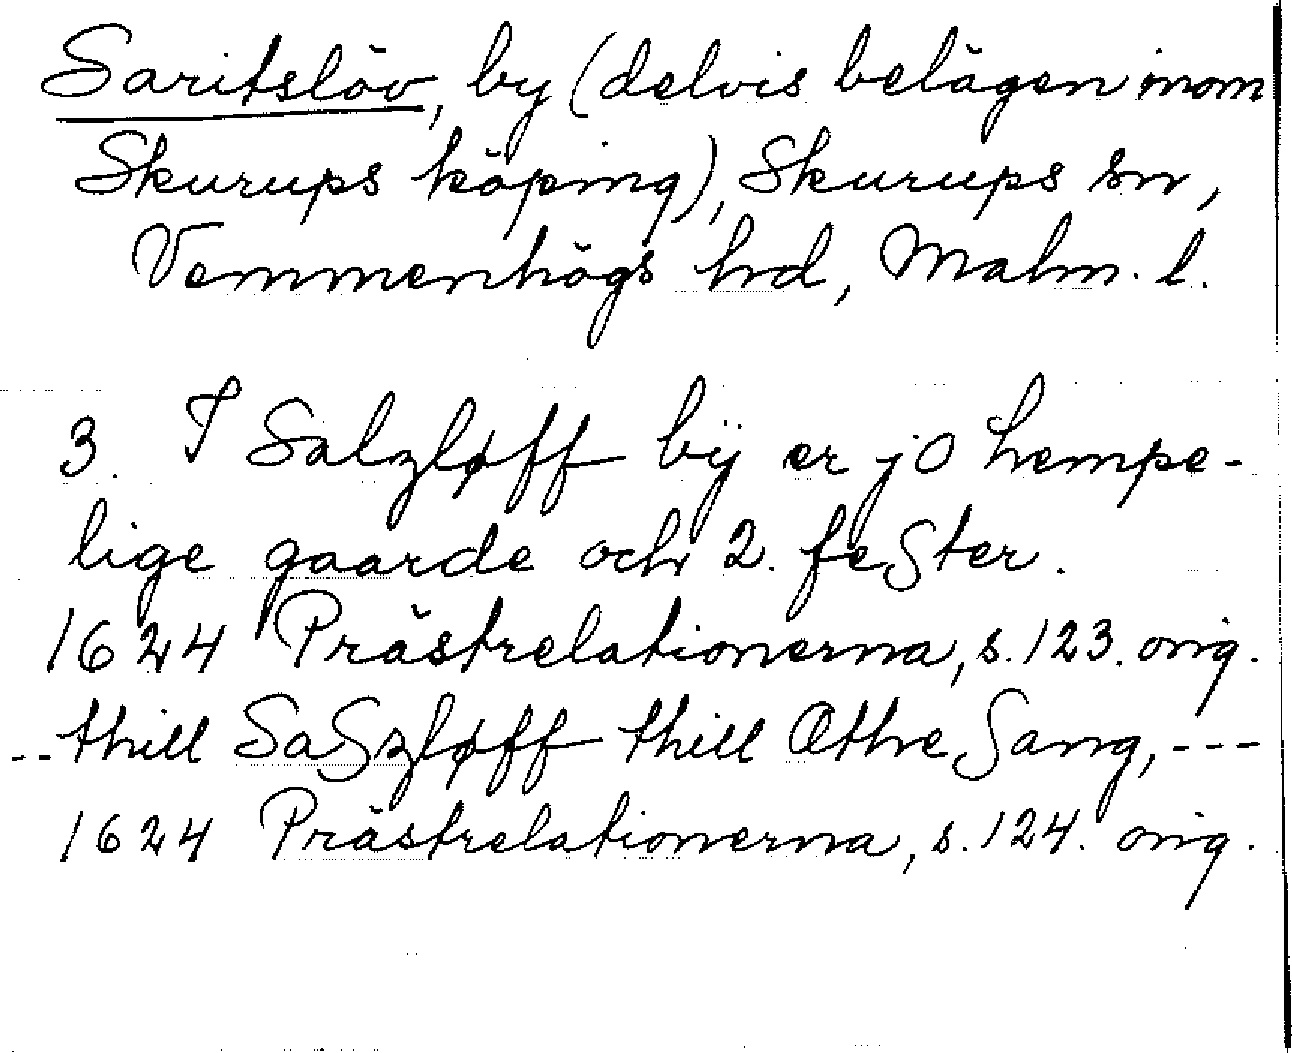 Saritslöv, by (delvis belägen inom
Skurups köping), Skurups sn,
Vemmenhögs hrd, Malm. l.
3. I Salzløff bÿ er jo hempe-
lige gaarde och 2. feſter.
1624 Prästrelationerna, s. 123. orig.
-- thill Saſzløff thill Øthre ſang, ---
1624 Prästrelationerna, s. 124. orig.